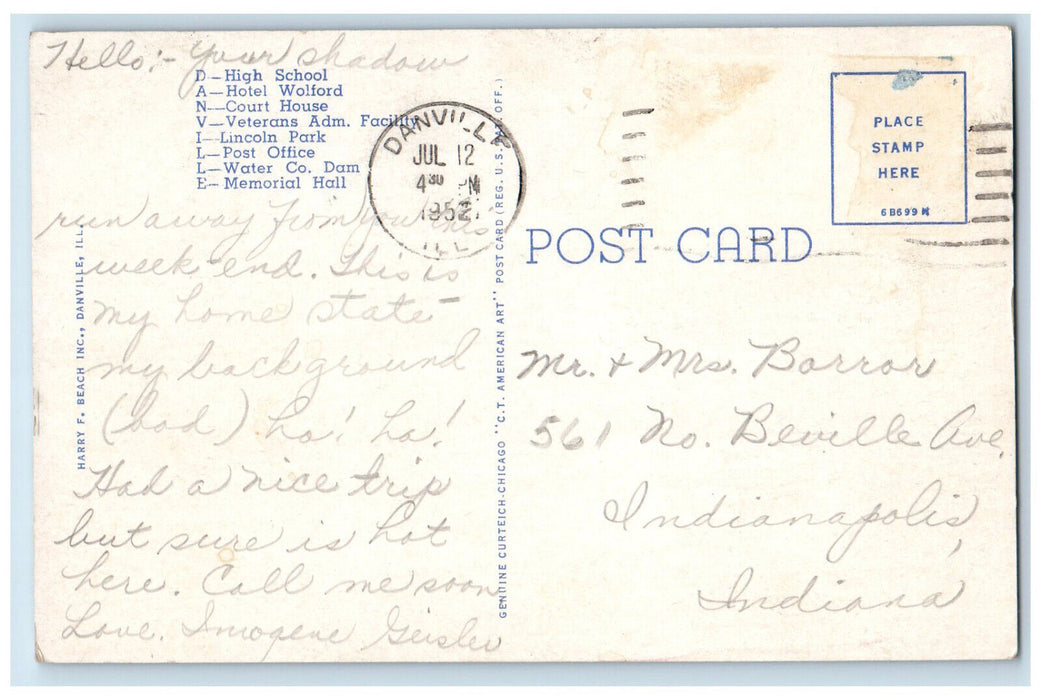 Hello:- Your shadow
D—High School
A—Hotel Wolford
N—Court House
V—Veterans Adm. Facility
I—Lincoln Park
L—Post Office
L—Water Co. Dam
E—Memorial Hall
run away from you this
week-end. This is
my home state -
my background
(bad) ha! ha!
Had a nice trip
but sure is hot
here. Call me soon
Love. Imogene Geisler
HARRY F. BEACH INC., DANVILLE, ILL.
DANVILLE
JUL 12
4 30 PM
1952
ILL
GENUINE CURTEICH-CHICAGO "C.T. AMERICAN ART" POST CARD (REG. U.S. PAT. OFF.)
POST CARD
PLACE
STAMP
HERE
6B699N
Mr. & Mrs. Borror
561 No. Beville Ave,
Indianapolis,
Indiana